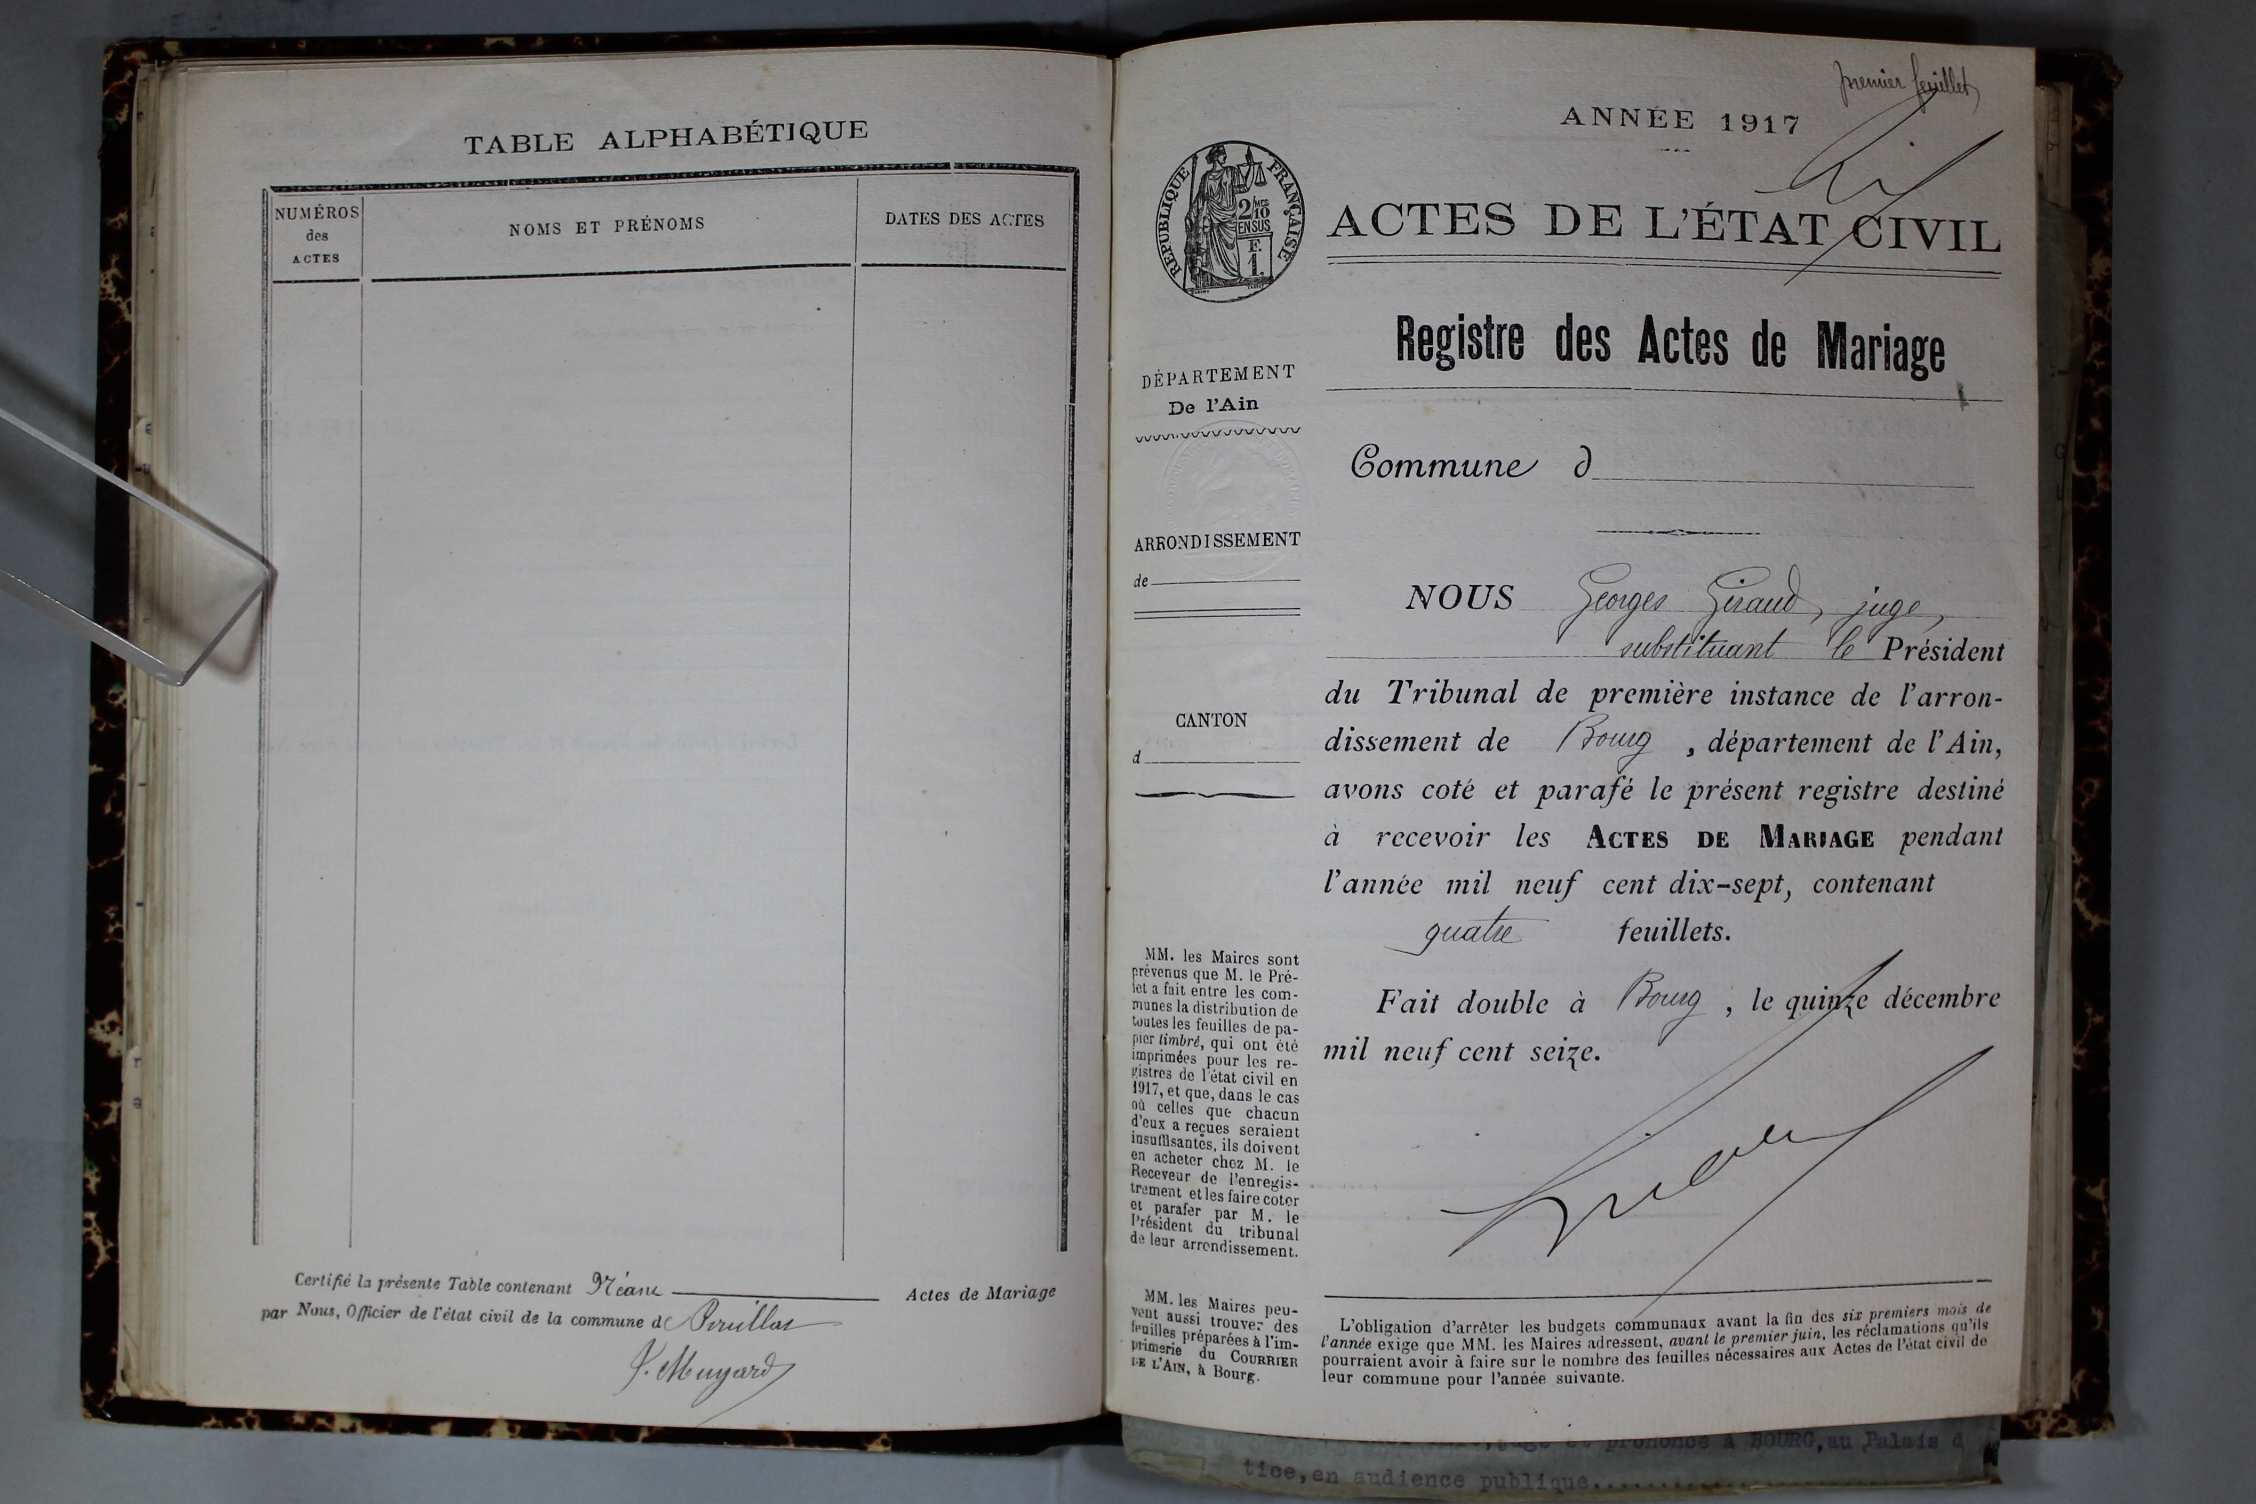 TABLE ALPHABÉTIQUE
NUMÉROS
des
ACTES
NOMS ET PRÉNOMS
DATES DES ACTES
Certifié la présente Table contenant Néant Actes de Mariage
par Nous, Officier de l'état civil de la commune de
premier feuillet
ANNÉE 1917
RÉPUBLIQUE FRANÇAISE
2/10
EN SUS
F.
1.
ACTES DE L'ÉTAT CIVIL
Registre des Actes de Mariage
DÉPARTEMENT
De l'Ain
Commune d
ARRONDISSEMENT
de
CANTON
d
NOUS Georges Giraud, juge,
substituant le Président
du Tribunal de première instance de l'arron-
dissement de Bourg, département de l'Ain,
avons coté et parafé le présent registre destiné
à recevoir les ACTES DE MARIAGE pendant
l'année mil neuf cent dix-sept, contenant
quatre feuillets.
Fait double à Bourg, le quinze décembre
mil neuf cent seize.
MM. les Maires sont
prévenus que M. le Pré-
fet a fait entre les com-
munes la distribution de
toutes les feuilles de pa-
pier timbré, qui ont été
imprimées pour les re-
gistres de l'état civil en
1917, et que, dans le cas
où celles que chacun
d'eux a reçues seraient
insuffisantes, ils doivent
en acheter chez M. le
Receveur de l'enregis-
trement et les faire coter
et parafer par M. le
Président du tribunal
de leur arrondissement.
MM. les Maires peu-
vent aussi trouver des
feuilles préparées à l'im-
primerie du COURRIER
DE L'AIN, à Bourg.
L'obligation d'arrêter les budgets communaux avant la fin des six premiers mois de
l'année exige que MM. les Maires adressent, avant le premier juin, les réclamations qu'ils
pourraient avoir à faire sur le nombre des feuilles nécessaires aux Actes de l'état civil de
leur commune pour l'année suivante.
prononcé à BOURG, au Palais d
tice, en audience publique